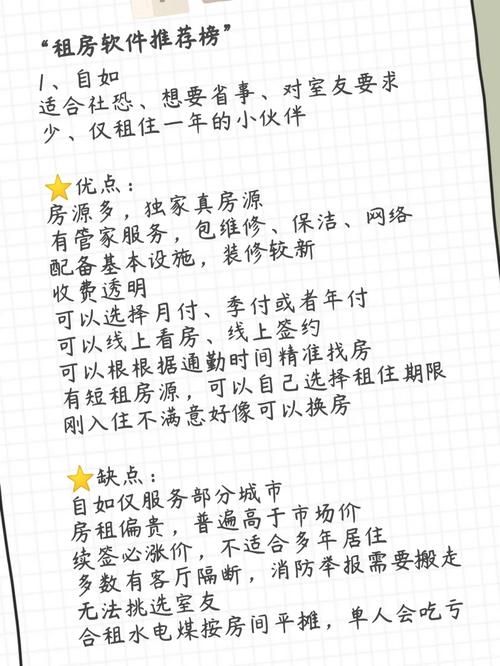 “租房软件推荐榜”
1、自如
适合社恐、想要省事、对室友要求
少、仅租住一年的小伙伴
⭐优点：
房源多，独家真房源
有管家服务，包维修、保洁、网络
配备基本设施，装修较新
收费透明
可以选择月付、季付或者年付
可以线上看房、线上签约
可以根根据通勤时间精准找房
有短租房源，可以自己选择租住期限
刚入住不满意好像可以换房
⭐缺点：
自如仅服务部分城市
房租偏贵，普遍高于市场价
续签必涨价，不适合多年居住
多数有客厅隔断，消防举报需要搬走
无法挑选室友
合租水电煤按房间平摊，单人会吃亏